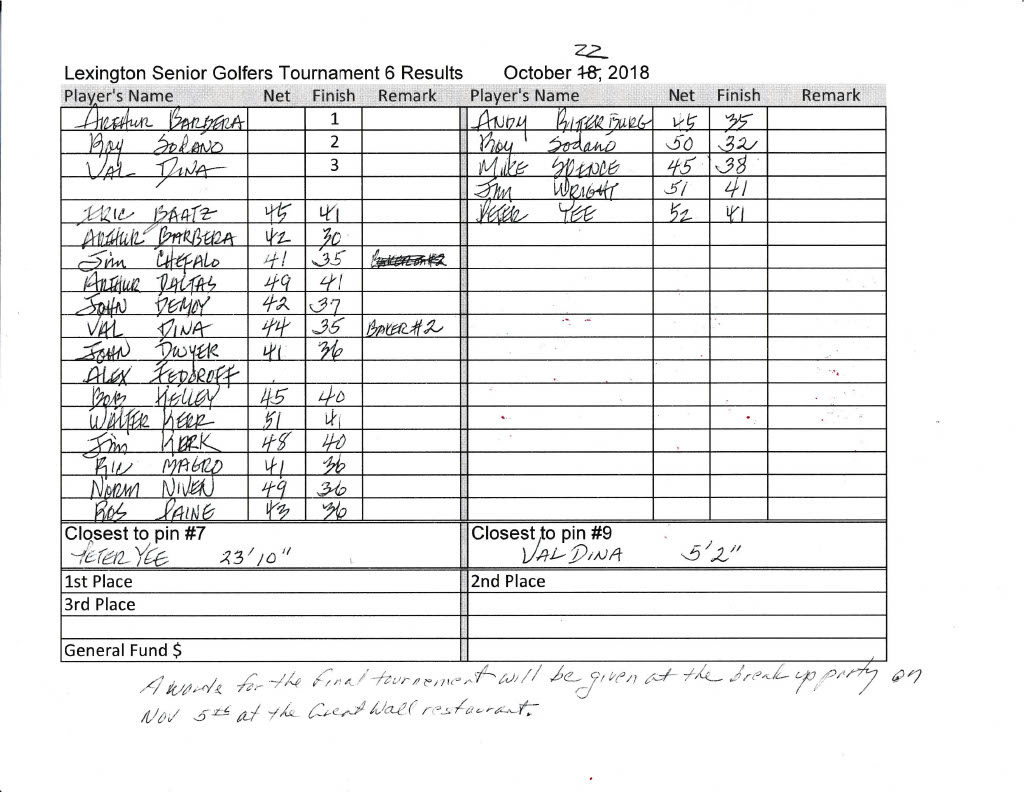 22
Lexington Senior Golfers Tournament 6 Results October 18, 2018
Player's Name Net Finish Remark Player's Name Net Finish Remark
ARTHUR BARBERA 1 ANDY BITTERBURG 45 35
Roy SODANO 2 Roy Sodano 50 32
VAL DINA 3 MIKE SPENCE 45 38
Jim WRIGHT 51 41
ERIC BAATZ 45 41 PETER YEE 52 41
ARTHUR BARBERA 42 30
Jim CHEFALO 41 35
ARTHUR DALTAS 49 41
JOHN DEMOY 42 37
VAL DINA 44 35 BAKER #2
JOHN DWYER 41 36
ALEX FEDOROFF
BOB KELLEY 45 40
WALTER KERR 51 41
Jim KIRK 48 40
RIC MAGRO 41 36
NORM NIVEN 49 36
ROS PAINE 43 36
Closest to pin #7 Closest to pin #9
PETER YEE 23'10" VAL DINA 5'2"
1st Place 2nd Place
3rd Place
General Fund $
Awards for the final tournement will be given at the break up party on
Nov 5th at the Great Wall restaurant.